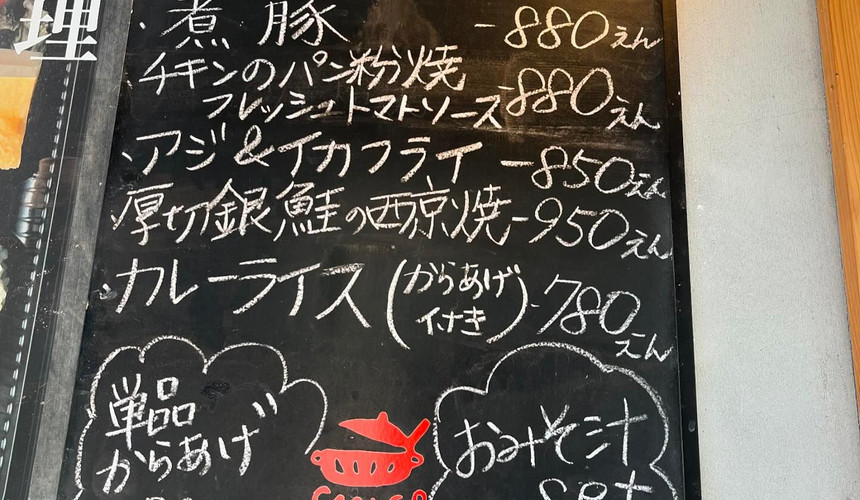 理
・煮豚 -880えん
チキンのパン粉焼
フレッシュトマトソース-880えん
・アジ&イカフライ-850えん
・厚切銀鮭の西京焼-950えん
・カレーライス(からあげ付き)-780えん
単品
からあげ
おみそ汁